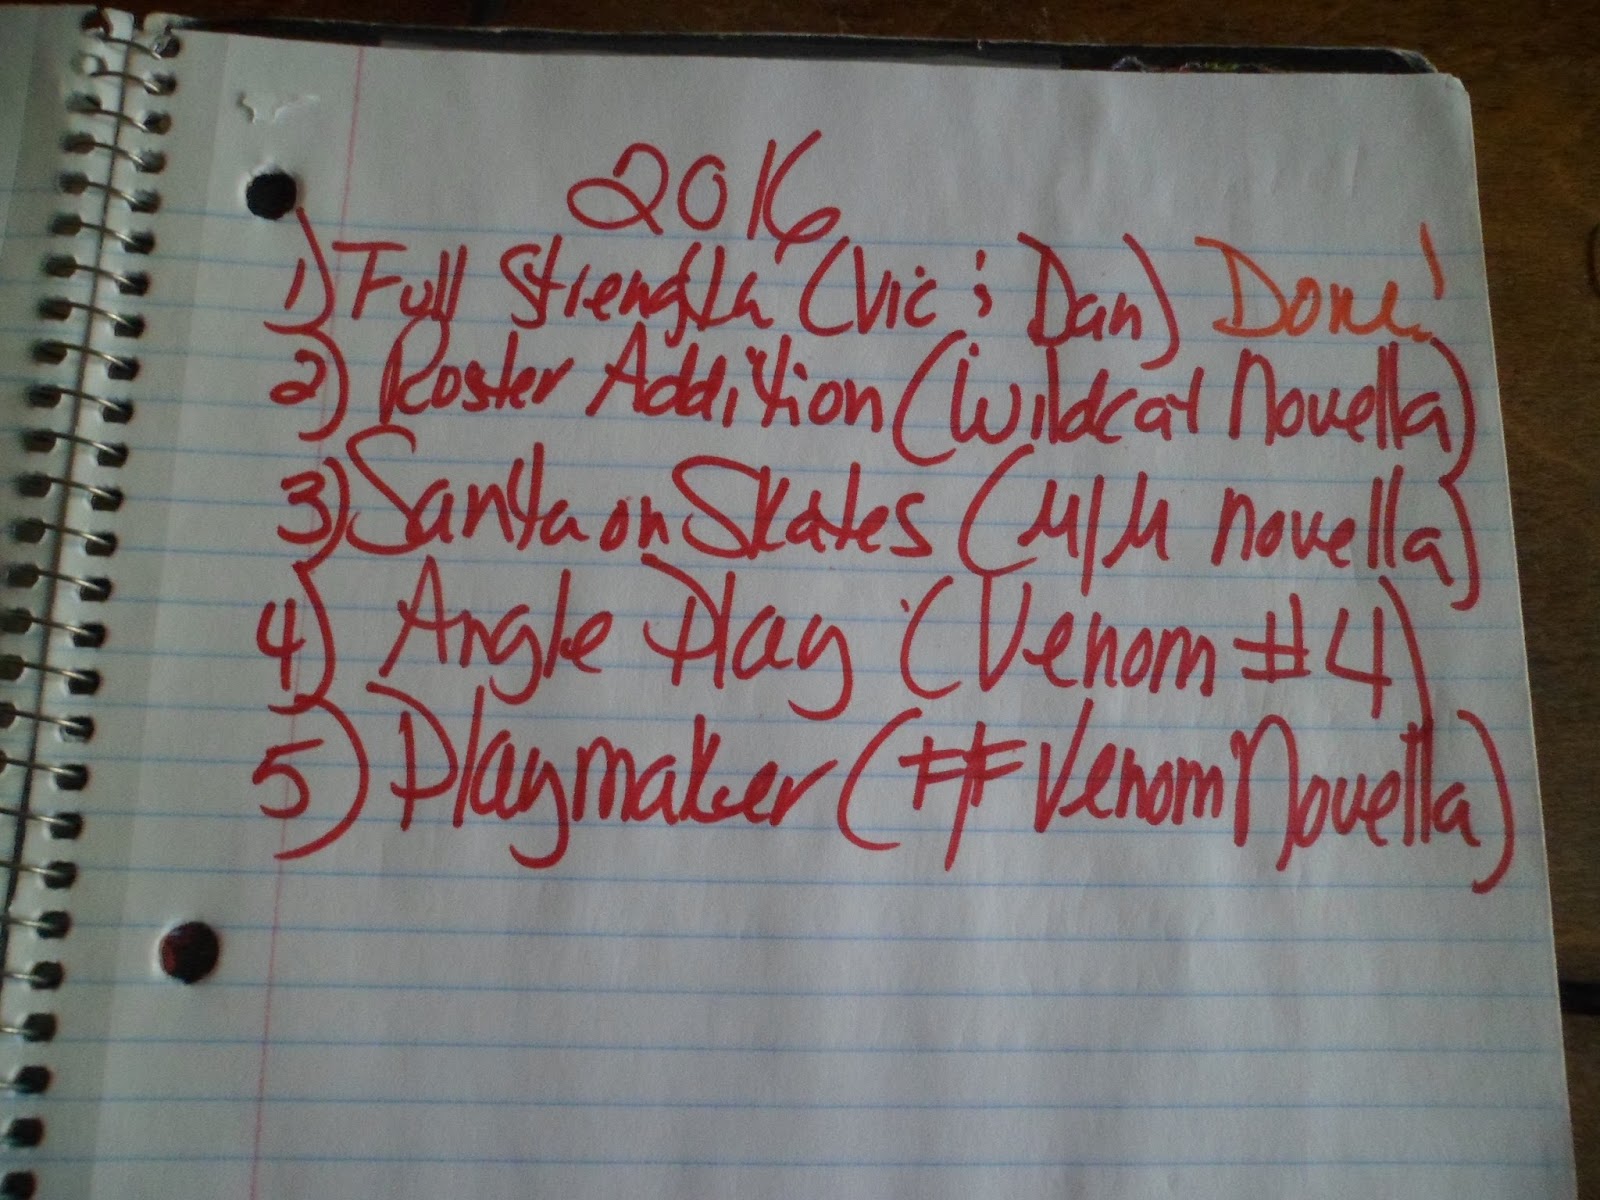 2016
1) Full Strength (Vic & Dan) Done!
2) Roster Addition (Wildcat Novella)
3) Santa on Skates (M/M novella)
4) Angle Play (Venom #4)
5) Playmaker (## Venom Novella)